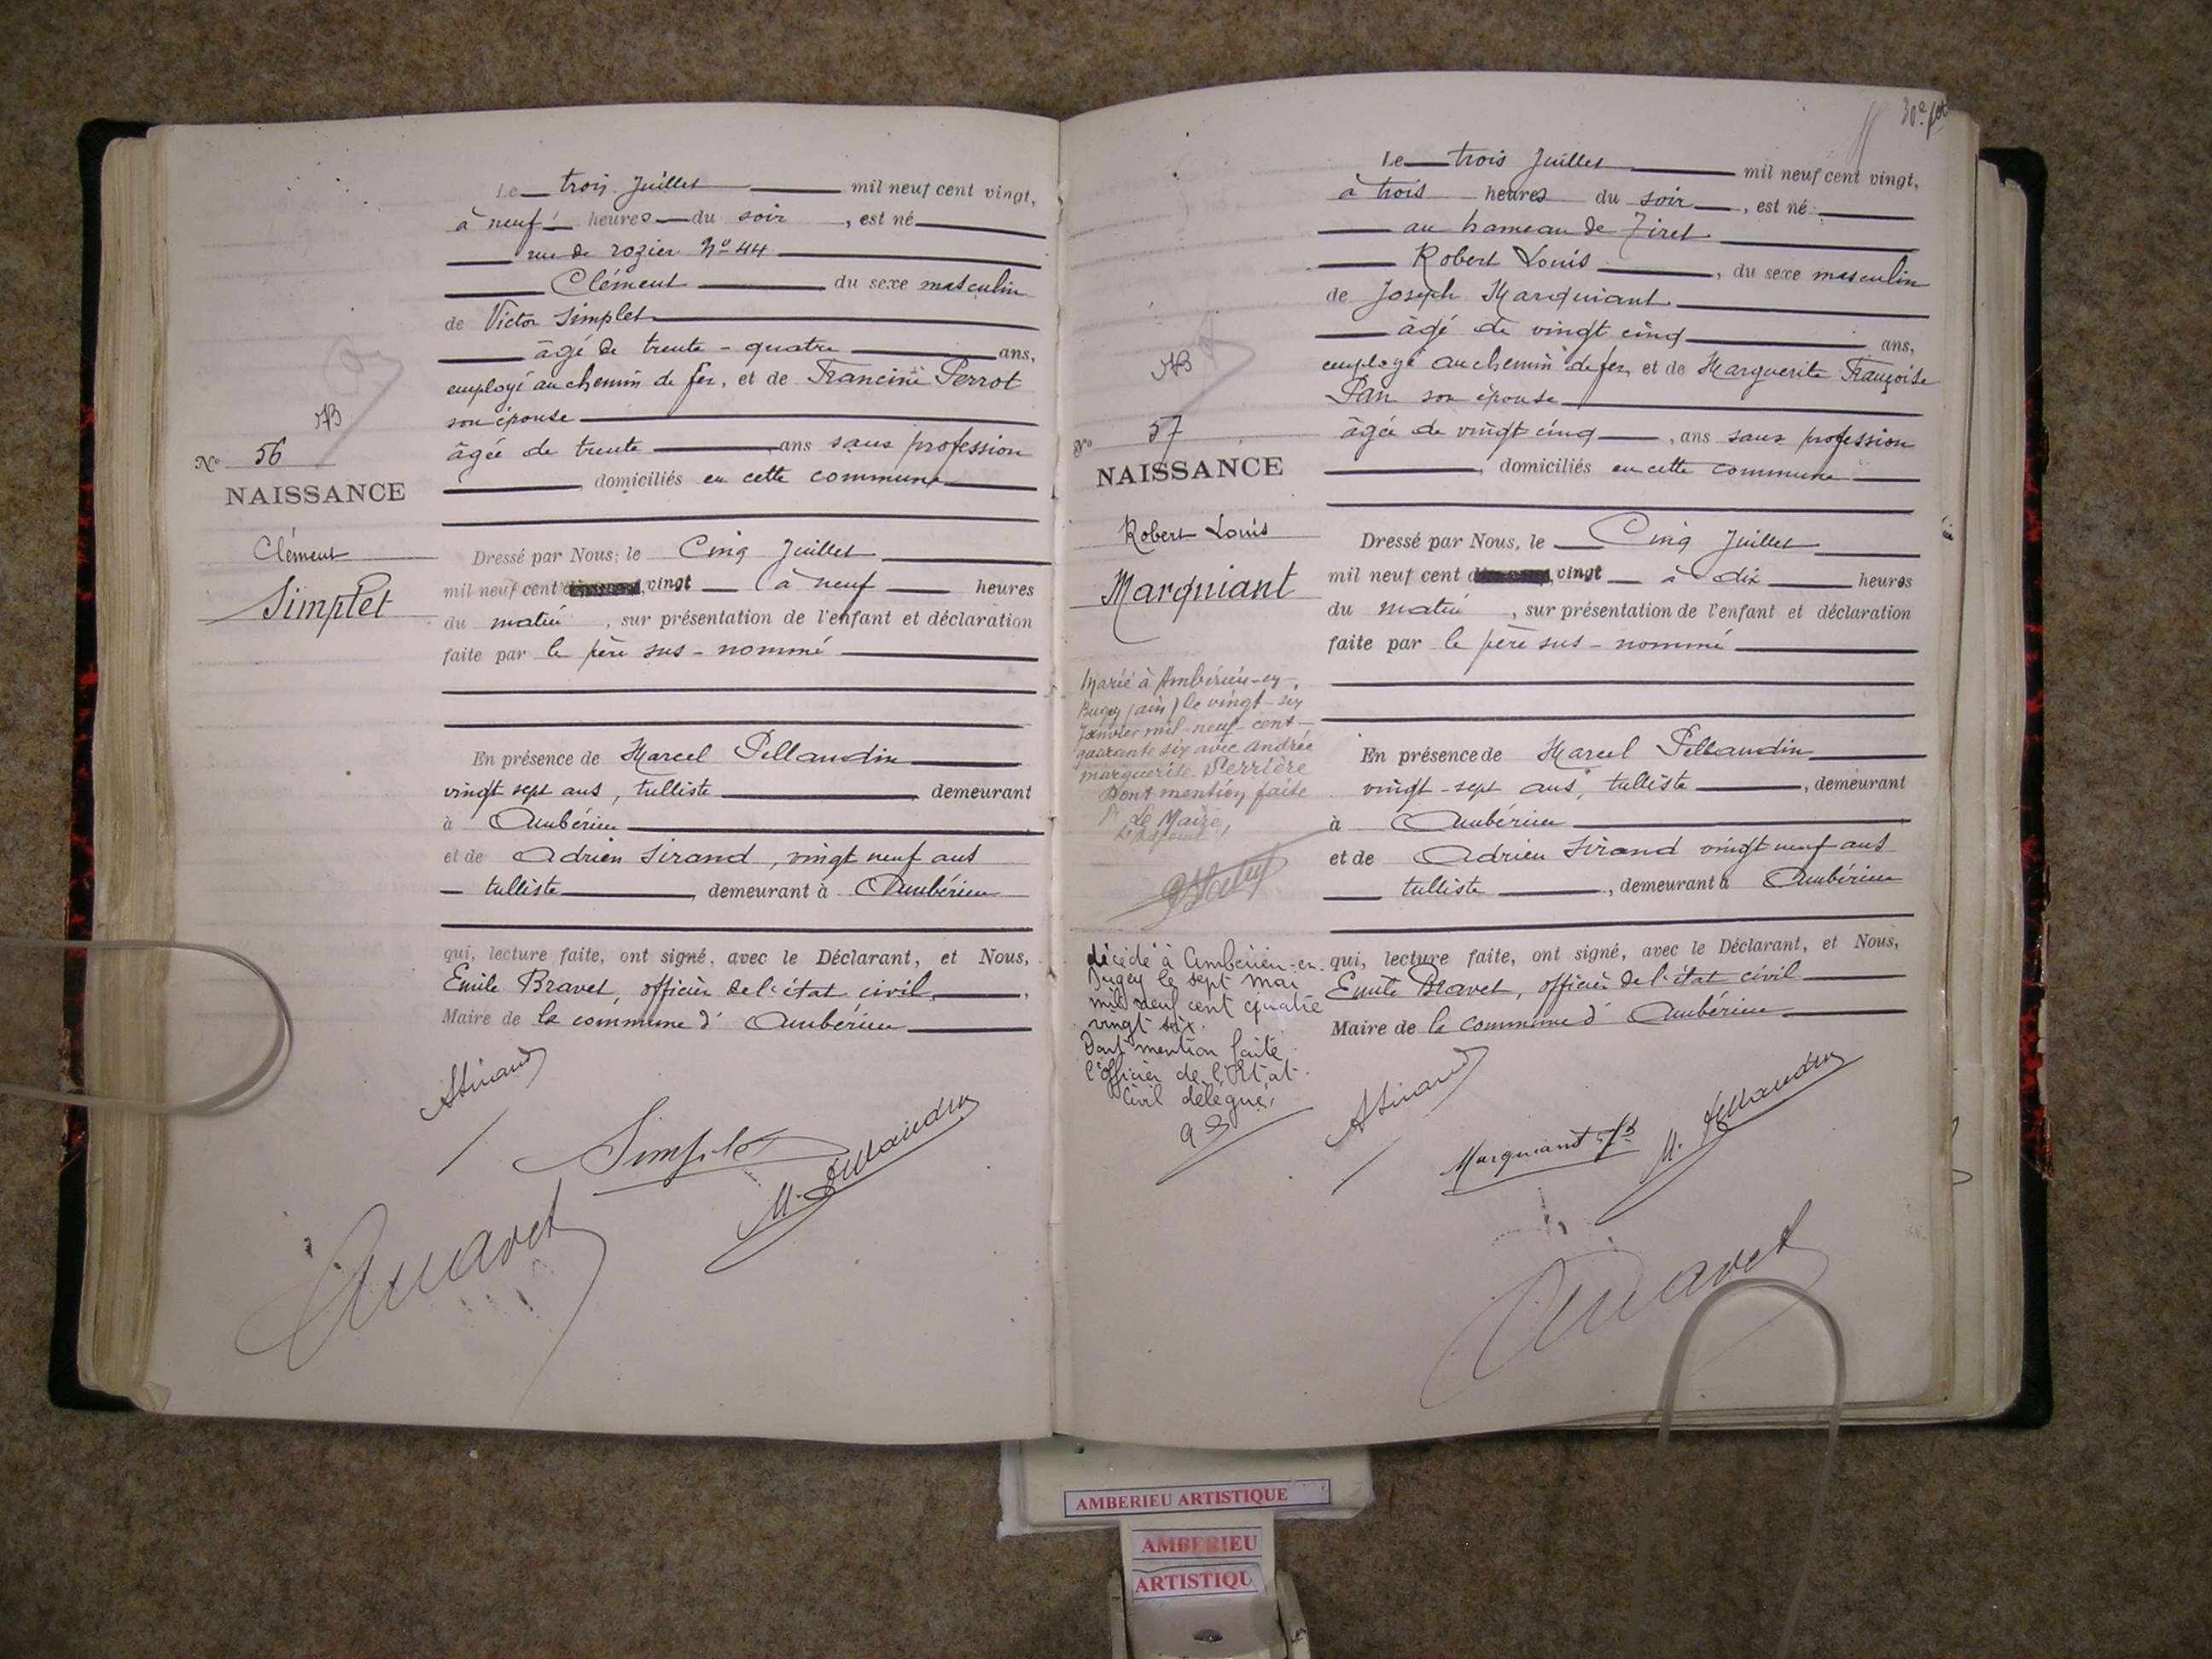 Le trois Juillet mil neuf cent vingt,
à neuf heures du soir, est né
rue de rozier No 44
Clément du sexe masculin
de Victor Simplet
âgé de trente-quatre ans,
employé au chemin de fer, et de Francine Perrot
son épouse
âgée de trente ans sans profession
domiciliés en cette commune
No 56
NAISSANCE
Clément
Simplet
Dressé par Nous, le Cinq Juillet
mil neuf cent vingt à neuf heures
du matin, sur présentation de l'enfant et déclaration
faite par le père sus-nommé
En présence de Marcel Pellaudin
vingt sept ans, tulliste demeurant
à Ambérieu
et de Adrien Sirand, vingt neuf ans
tulliste, demeurant à Ambérieu
qui, lecture faite, ont signé, avec le Déclarant, et Nous,
Emile Bravet, officier de l'état civil,
Maire de la commune d'Ambérieu
ASirand
Simplet
M. Pellaudin
30e fet
Le trois Juillet mil neuf cent vingt,
à trois heures du soir, est né
au hameau de Tiret
Robert Louis, du sexe masculin
de Joseph Marquiant
âgé de vingt cinq ans,
employé au chemin de fer, et de Marguerite Françoise
Pan son épouse
âgée de vingt cinq, ans sans profession
, domiciliés en cette commune
No 57
NAISSANCE
Robert Louis
Marquiant
Marié à Ambérieu-en-
Bugey (ain) le vingt-six
Janvier mil-neuf-cent-
quarante six avec andrée
marguerite Perrière
Dont mention faite
Pr Le Maire,
L'Adjoint,
décédé à Ambérieu-en-
Bugey le sept mai
mil neuf cent quatre
vingt six.
Dont mention faite
l'officier de l'Etat
Civil délégué,
Dressé par Nous, le Cinq Juillet
mil neuf cent vingt à dix heures
du matin, sur présentation de l'enfant et déclaration
faite par le père sus-nommé
En présence de Marcel Pellaudin
vingt-sept ans, tulliste, demeurant
à Ambérieu
et de Adrien Sirand vingt neuf ans
tulliste, demeurant à Ambérieu
qui, lecture faite, ont signé, avec le Déclarant, et Nous,
Emile Bravet, officier de l'état civil
Maire de la commune d'Ambérieu
ASirand
Marquiant
M. Pellaudin
AMBERIEU ARTISTIQUE
AMBERIEU
ARTISTIQU